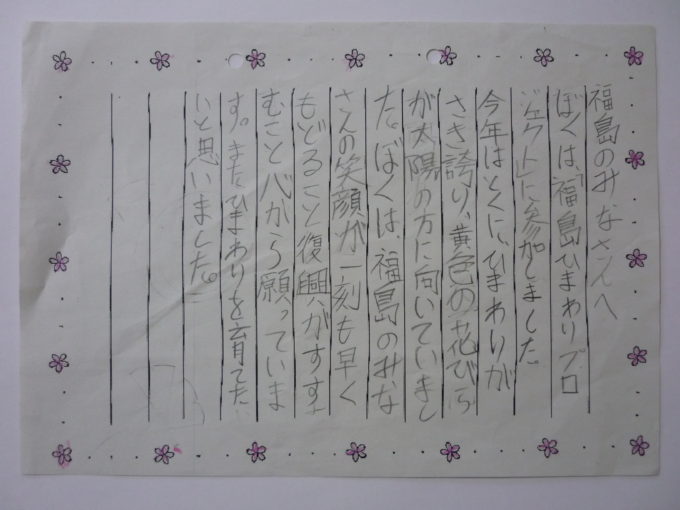 福島のみなさんへ
ぼくは、「福島ひまわりプロ
ジェクト」に参加しました。
今年はとくに、ひまわりが
さき誇り、黄色の花びら
が太陽の方に向いていまし
た。ぼくは、福島のみな
さんの笑顔が一刻も早く
もどること復興がすす
むこと心から願っていま
す。またひまわりを育てた
いと思いました。